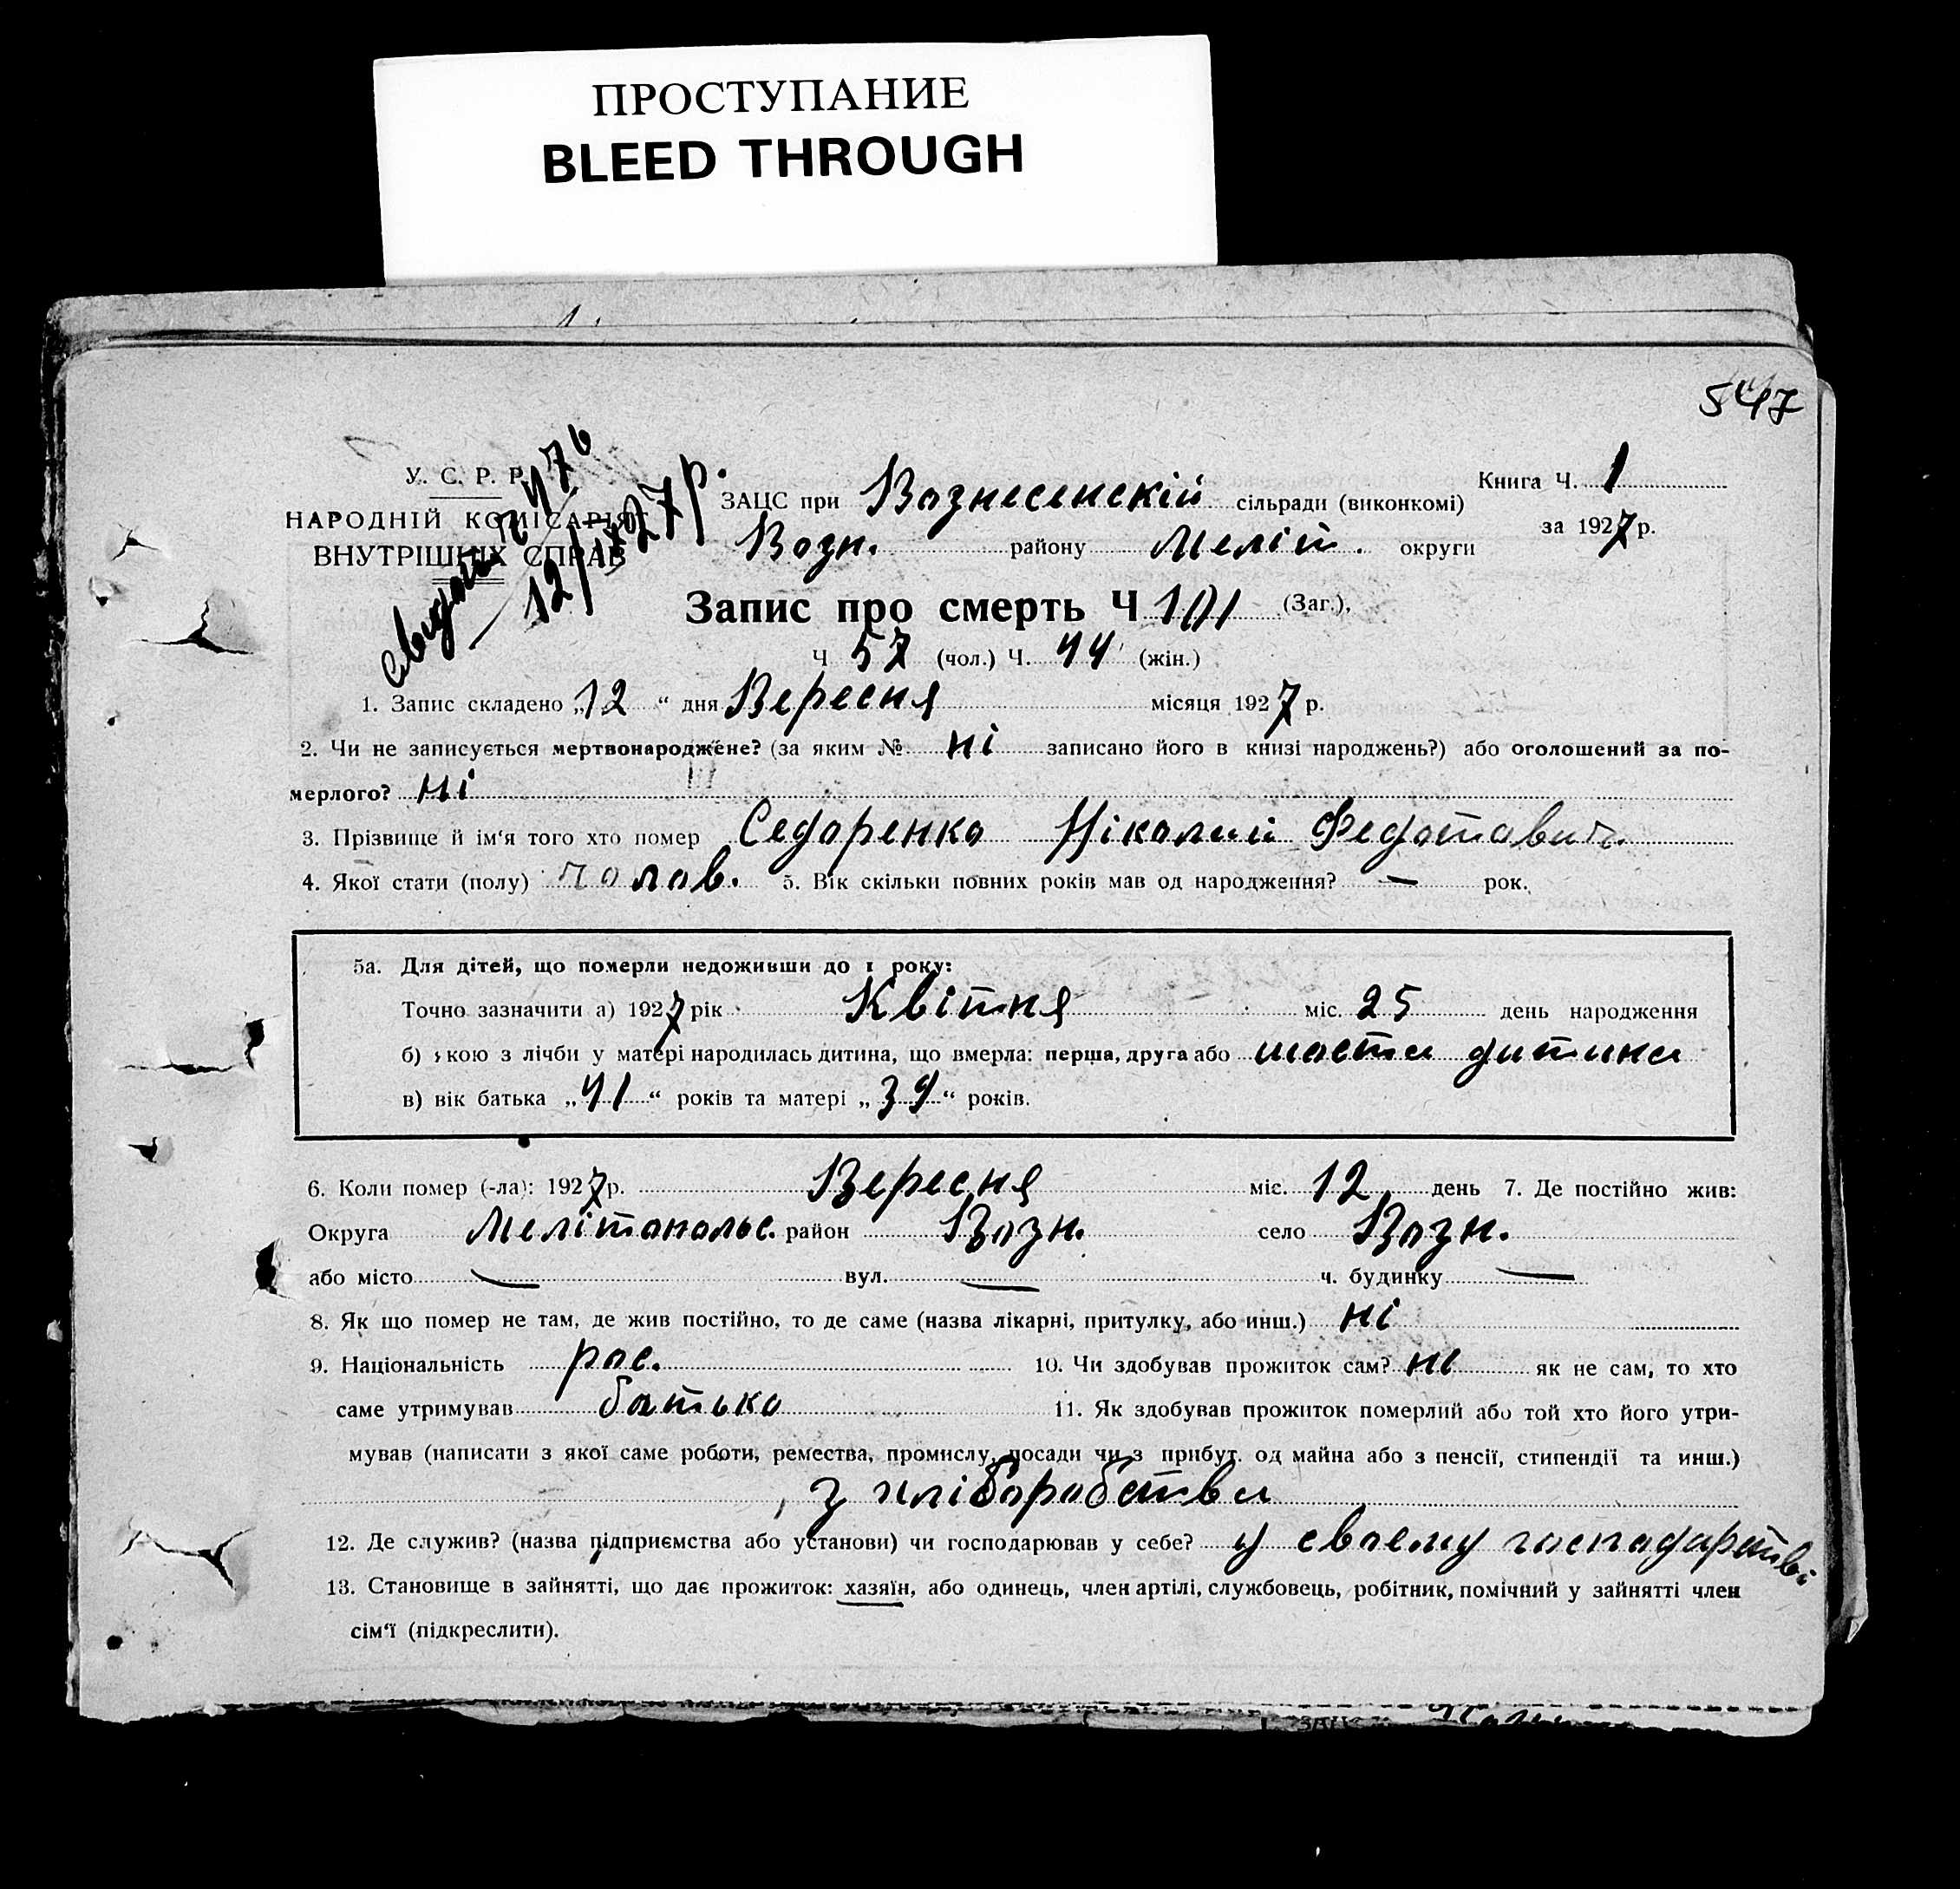 ПРОСТУПАНИЕ
BLEED THROUGH
547
У. С. Р. Р.
НАРОДНІЙ КОМІСАРІЯТ
ВНУТРІШНІХ СПРАВ
12/ 27 р.
ЗАЦС при Вознесенскій сільради (виконкомі)
Книга Ч. 1
Возн. району Меліт. округи
за 1927 р.
Запис про смерть Ч 101 (Заг.),
Ч 57 (чол.) Ч. 44 (жін.)
1. Запис складено „12“ дня Вересня місяця 1927 р.
2. Чи не записується мертвонароджене? (за яким № ні записано його в книзі народжень?) або оголошений за по-
мерлого? ні
3. Прізвище й ім'я того хто помер Седоренко Ніколай Федотович
4. Якої стати (полу) чолов. 5. Вік скільки повних років мав од народження? — рок.
5а. Для дітей, що померли недоживши до 1 року:
Точно зазначити а) 1927 рік Квітня міс. 25 день народження
б) якою з лічби у матері народилась дитина, що вмерла: перша, друга або шоста дитина
в) вік батька „41“ років та матері „39“ років.
6. Коли помер (-ла): 1927 р. Вересня міс. 12 день 7. Де постійно жив:
Округа Мелітопольс. район Возн. село Возн.
або місто — вул. — ч. будинку —
8. Як що помер не там, де жив постійно, то де саме (назва лікарні, притулку, або инш.) ні
9. Національність рос. 10. Чи здобував прожиток сам? ні як не сам, то хто
саме утримував батько 11. Як здобував прожиток померлий або той хто його утри-
мував (написати з якої саме роботи, ремества, промислу, посади чи з прибут. од майна або з пенсії, стипендії та инш.)
з хліборобства
12. Де служив? (назва підприємства або установи) чи господарював у себе? у своему господарстві
13. Становище в зайнятті, що дає прожиток: хазяїн, або одинець, член артілі, службовець, робітник, помічний у зайнятті член
сім'ї (підкреслити).